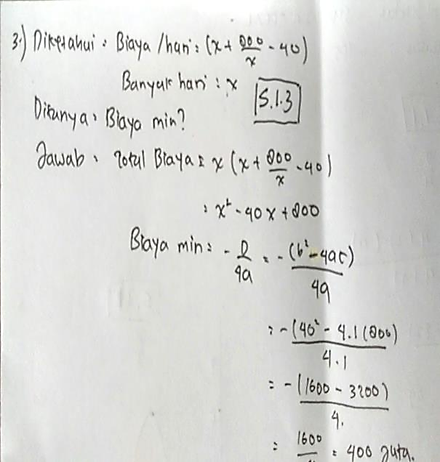 3.) Diketahui : Biaya / hari : (x + 800/x - 40)
Banyak hari : x
S.1.3
Ditanya : Biaya min?
Jawab : Total Biaya : x (x + 800/x - 40)
: x² - 40x + 800
Biaya min : - D/4a = -(b² - 4ac)/4a
: -(40² - 4.1(800)/4.1
= -(1600 - 3200)/4.
: 1600/4 = 400 juta.